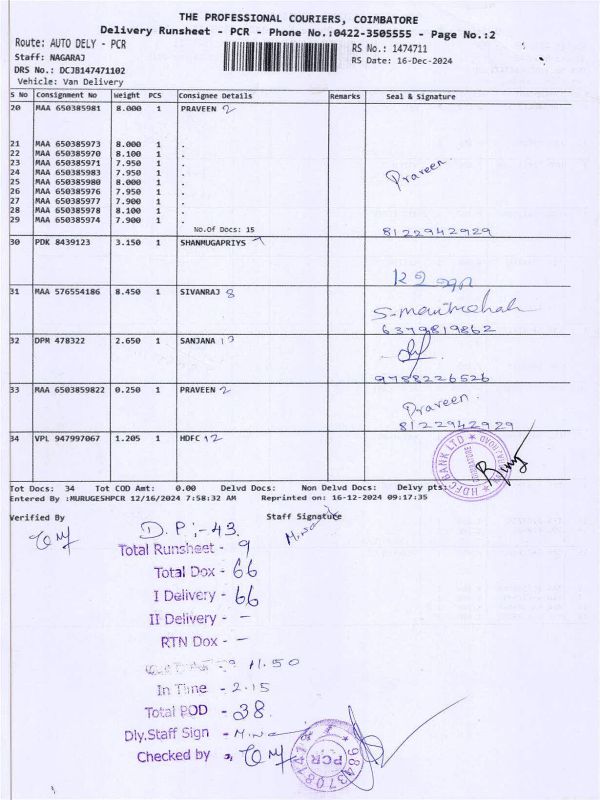 THE PROFESSIONAL COURIERS, COIMBATORE
Delivery Runsheet - PCR - Phone No.:0422-3505555 - Page No.:2
Route: AUTO DELY - PCR RS No.: 1474711
Staff: NAGARAJ RS Date: 16-Dec-2024
DRS No.: DCJB147471102
Vehicle: Van Delivery
S No Consignment No Weight PCS Consignee Details Remarks Seal & Signature
20 MAA 650385981 8.000 1 PRAVEEN 2
21 MAA 650385973 8.000 1 .
22 MAA 650385970 8.100 1 .
23 MAA 650385971 7.950 1 .
24 MAA 650385983 7.950 1 .
25 MAA 650385980 8.000 1 .
26 MAA 650385976 7.950 1 .
27 MAA 650385977 7.900 1 .
28 MAA 650385978 8.100 1 .
29 MAA 650385974 7.900 1 .
Praveen.
No.Of Docs: 15
8122942929
30 PDK 8439123 3.150 1 SHANMUGAPRIYS
31 MAA 576554186 8.450 1 SIVANRAJ 8
6379819862
32 DPM 478322 2.650 1 SANJANA
9788226526
33 MAA 6503859822 0.250 1 PRAVEEN 2
Praveen.
8122942929
34 VPL 947997067 1.205 1 HDFC 12
HDFC BANK LTD
Tot Docs: 34 Tot COD Amt: 0.00 Delvd Docs: Non Delvd Docs: Delvy pts:
Entered By :MURUGESHPCR 12/16/2024 7:58:32 AM Reprinted on: 16-12-2024 09:17:35
Verified By Staff Signature
D.P:-43.
Total Runsheet - 9
Total Dox - 66
I Delivery - 66
II Delivery - -
RTN Dox - -
11.50
In Time - 2.15
Total POD - 38.
Dly.Staff Sign -
Checked by -
PCR